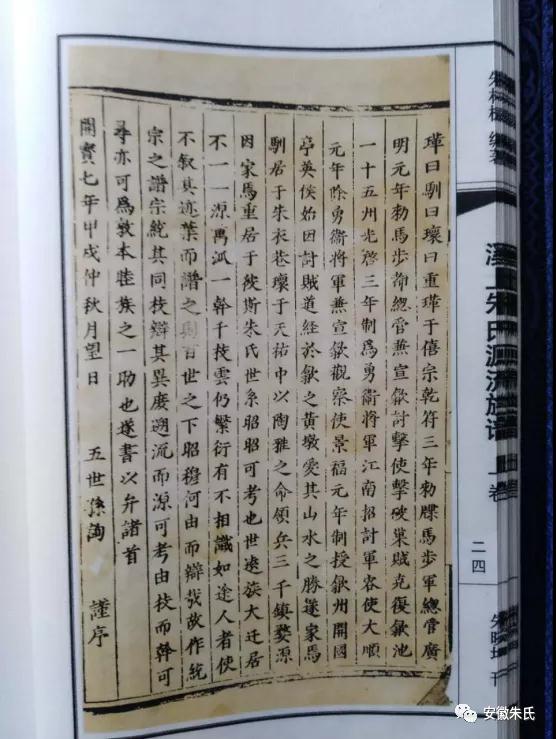 璍曰馴曰瓌曰重璍于僖宗乾符三年勑牒馬步軍總管廣
明元年勑馬步都總管兼宣歙討擊使擊破巢賊克復歙池
一十五州光啓三年制爲勇衛將軍江南招討軍容使大順
元年除勇衛將軍兼宣歙觀察使景福元年制授歙州開國
亭英侯始因討賊道經於歙之黃墩愛其山水之勝遂家焉
馴居于朱衣巷瓌于天祐中以陶雅之命領兵三千鎮婺源
因家焉重居于彼斯朱氏世系昭昭可考也世遠族大迁居
不一一源萬派一幹千枝雲仍繁衍有不相識如途人者使
不叙其迹葉而譜之則百世之下昭穆何由而辯哉故作統
宗之譜宗統其同枝辯其異庶遡流而源可考由枝而幹可
尋亦可爲敦本睦族之一助也遂書以弁諸首
開寶七年甲戌仲秋月望日 五世孫陶 謹序
朱氏源流族譜 上卷
二四
安徽朱氏